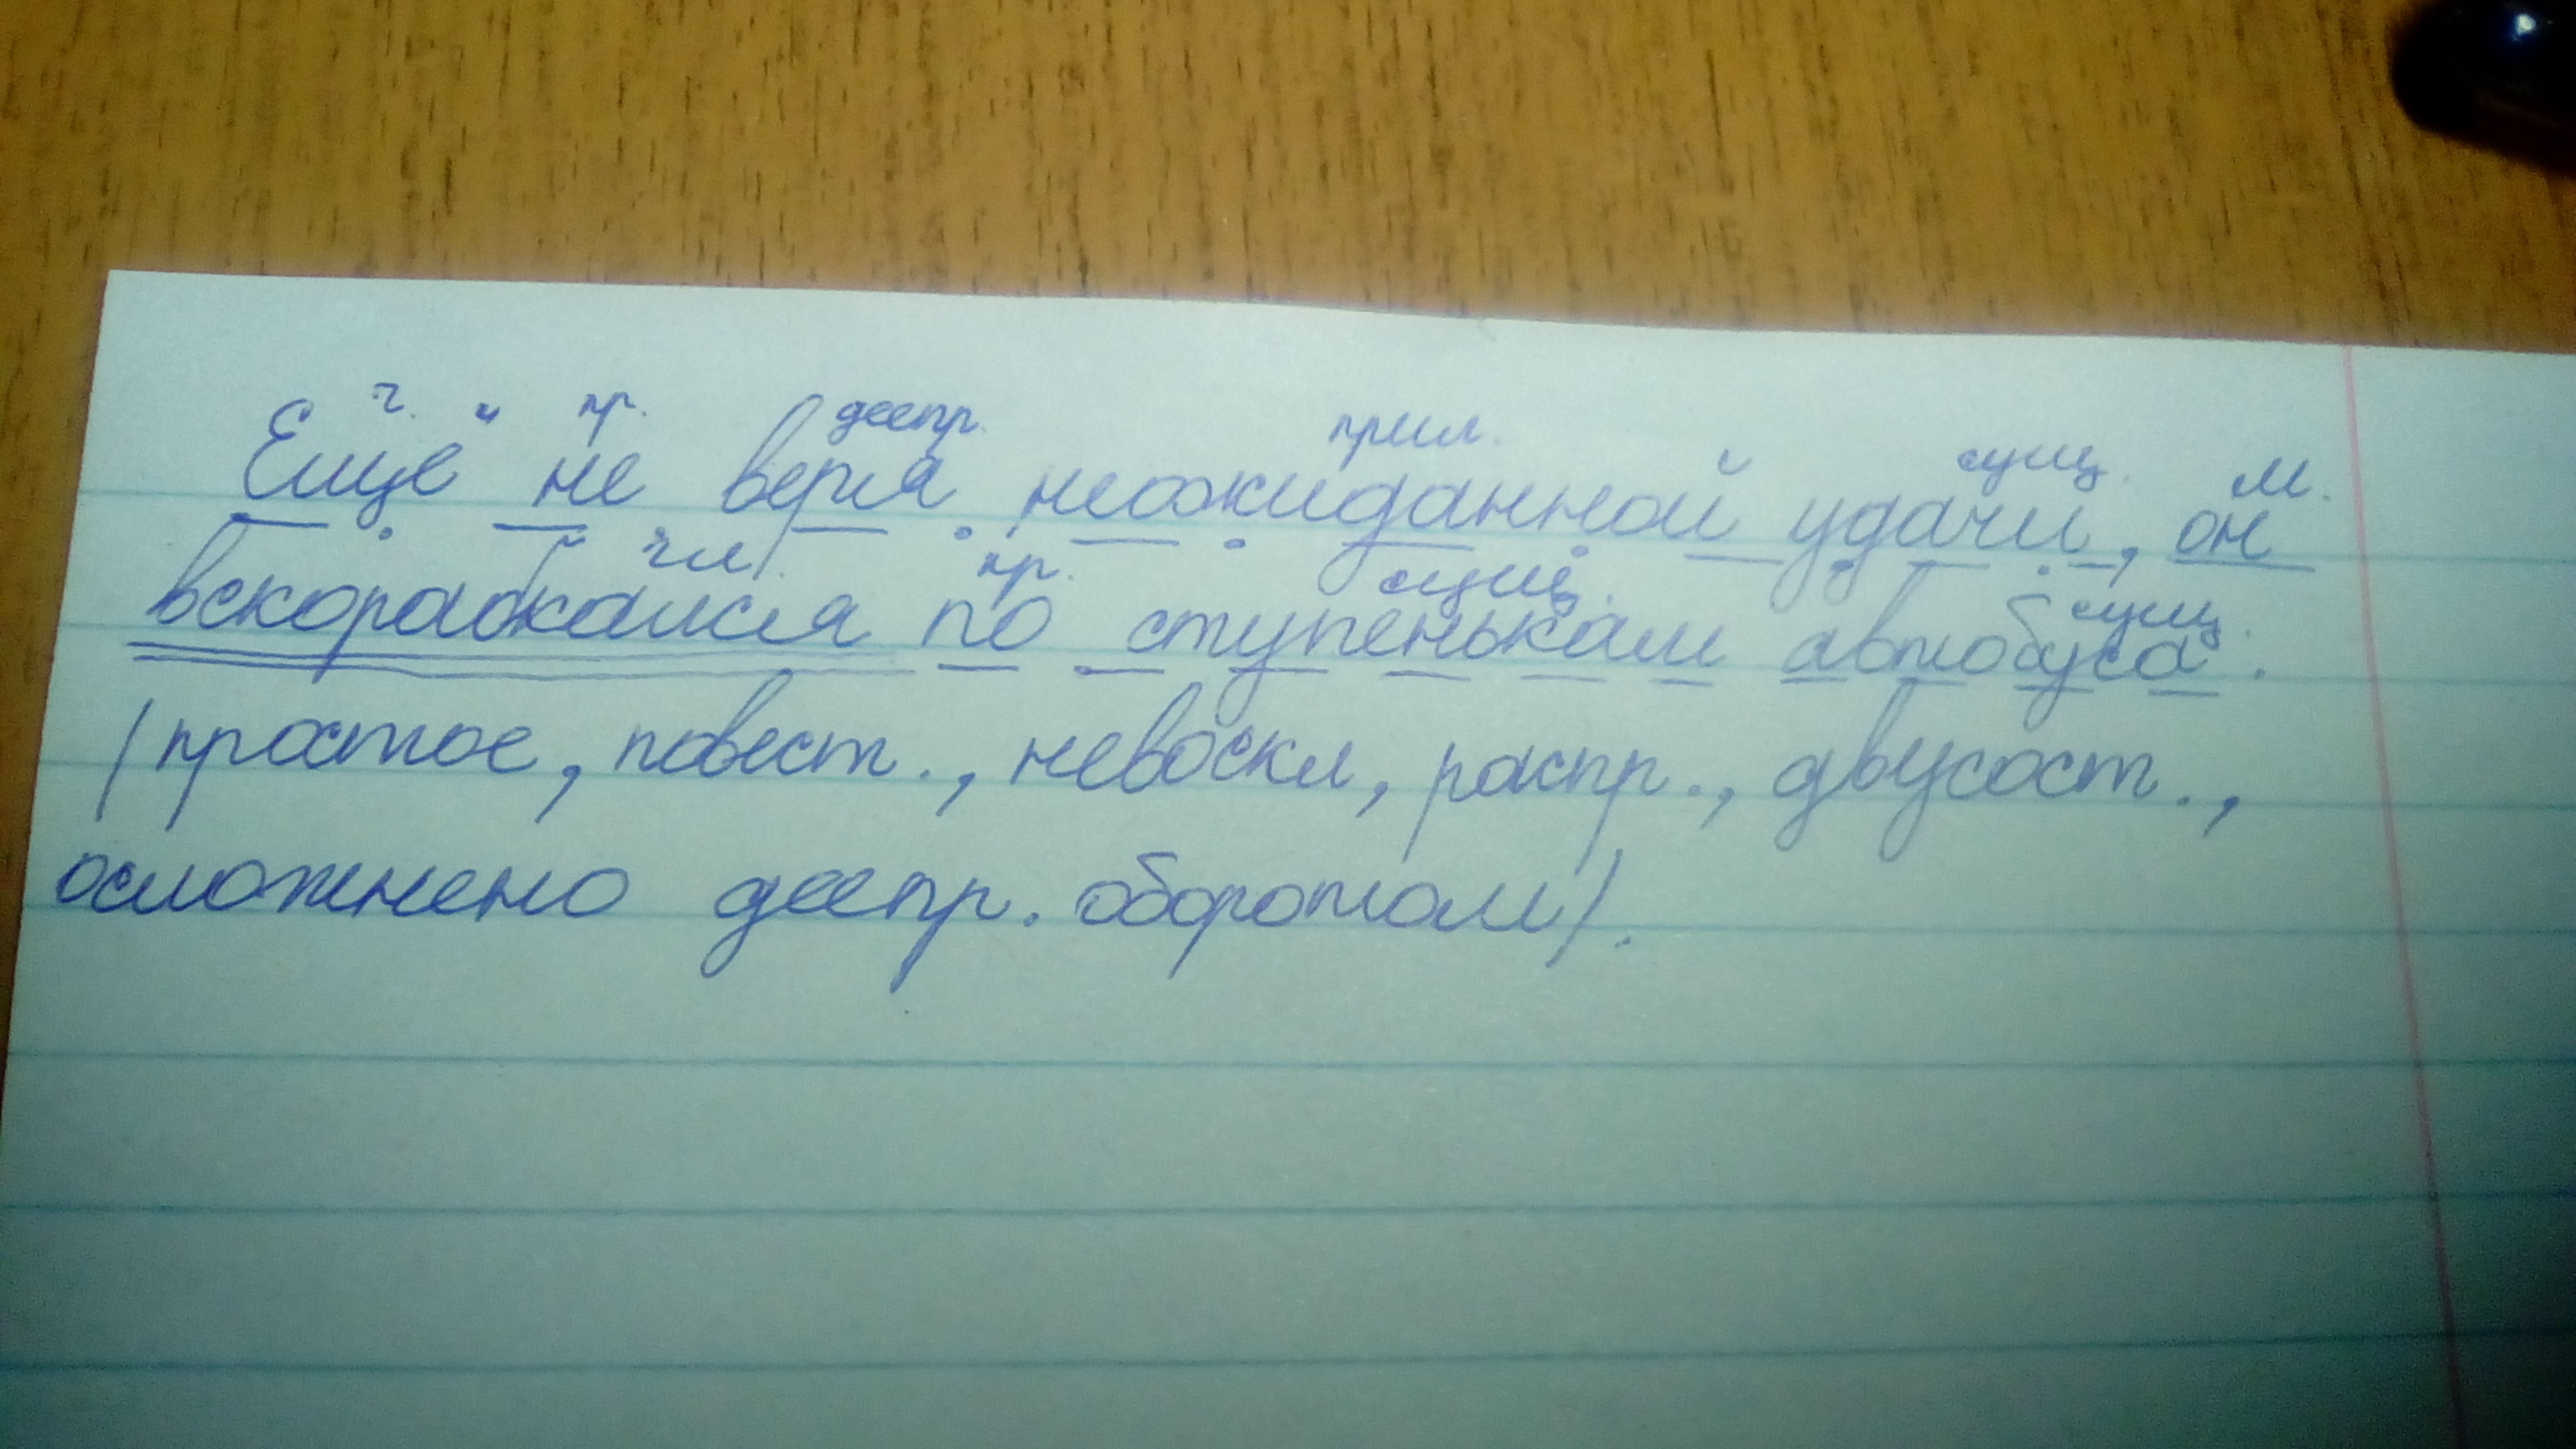 ч. пр. деепр. прил. сущ. М.
Ещё не веря неожиданной удачи, он
гл. пр. сущ. сущ.
вскорабкался по ступенькам автобуса.
(простое, повест., невоскл, распр., двусост.,
осложнено деепр. оборотом).